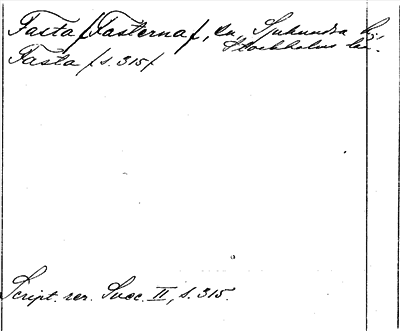 Fasta /Fasterna/, sn, Sjuhundra hd,
Stockholms län.
Fasta /s. 315/
Script. rer. Svec. II, s. 315.